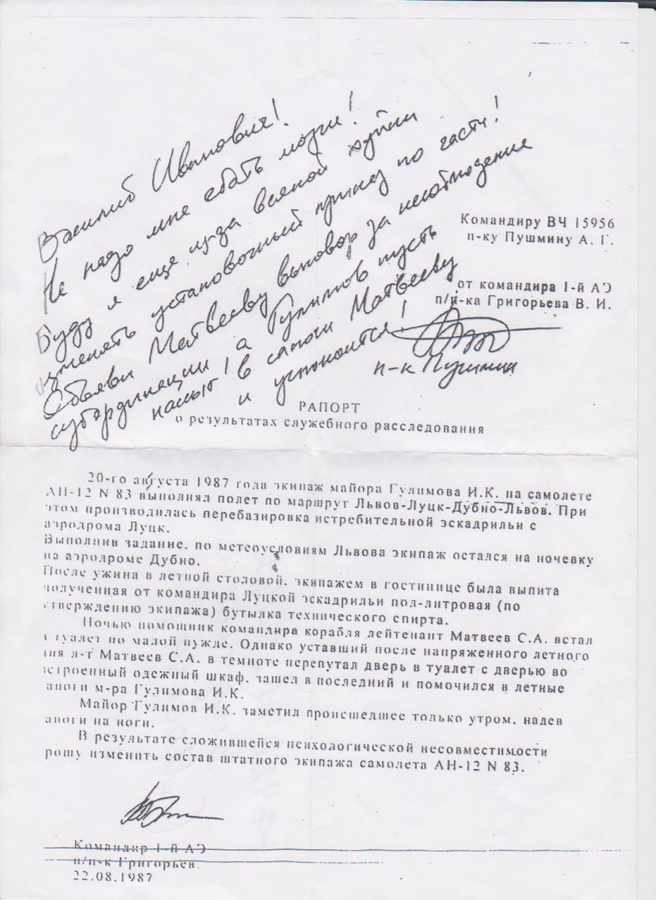 Василий Иванович!
Не надо мне ебать мозги!
Буду я еще из-за всякой хуйни
изменять установочный приказ по части!
Объяви Матвееву выговор за несоблюдение
субординации, а Гулимов пусть
насыт в сапоги Матвееву
и успокоится!
п-к Пушмин
Командиру ВЧ 15956
п-ку Пушмину А. Г.
от командира 1-й АЭ
п/п-ка Григорьева В. И.
РАПОРТ
о результатах служебного расследования
20-го августа 1987 года экипаж майора Гулимова И.К. на самолете
АН-12 N 83 выполнял полет по маршрут Львов-Луцк-Дубно-Львов. При
этом производилась перебазировка истребительной эскадрильи с
аэродрома Луцк.
Выполнив задание, по метеоусловиям Львова экипаж остался на ночевку
на аэродроме Дубно.
После ужина в летной столовой, экипажем в гостинице была выпита
полученная от командира Луцкой эскадрильи пол-литровая (по
тверждению экипажа) бутылка технического спирта.
Ночью помощник командира корабля лейтенант Матвеев С.А. встал
в туалет по малой нужде. Однако уставший после напряженного летного
дня л-т Матвеев С.А. в темноте перепутал дверь в туалет с дверью во
строенный одежный шкаф, зашел в последний и помочился в летные
апоги м-ра Гулимова И.К.
Майор Гулимов И.К. заметил происшедшее только утром, надев
апоги на ноги.
В результате сложившейся психологической несовместимости
рошу изменить состав штатного экипажа самолета АН-12 N 83.
Командир 1-й АЭ
п/п-к Григорьев.
22.08.1987